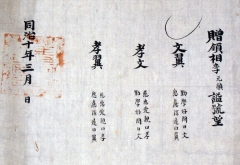 贈領相李元翼諡號望
文翼
勤學好問曰文
思慮深遠曰翼
孝文
慈惠愛親曰孝
勤學好問曰文
孝翼
慈惠愛親曰孝
思慮深遠曰翼
同治十年三月 日